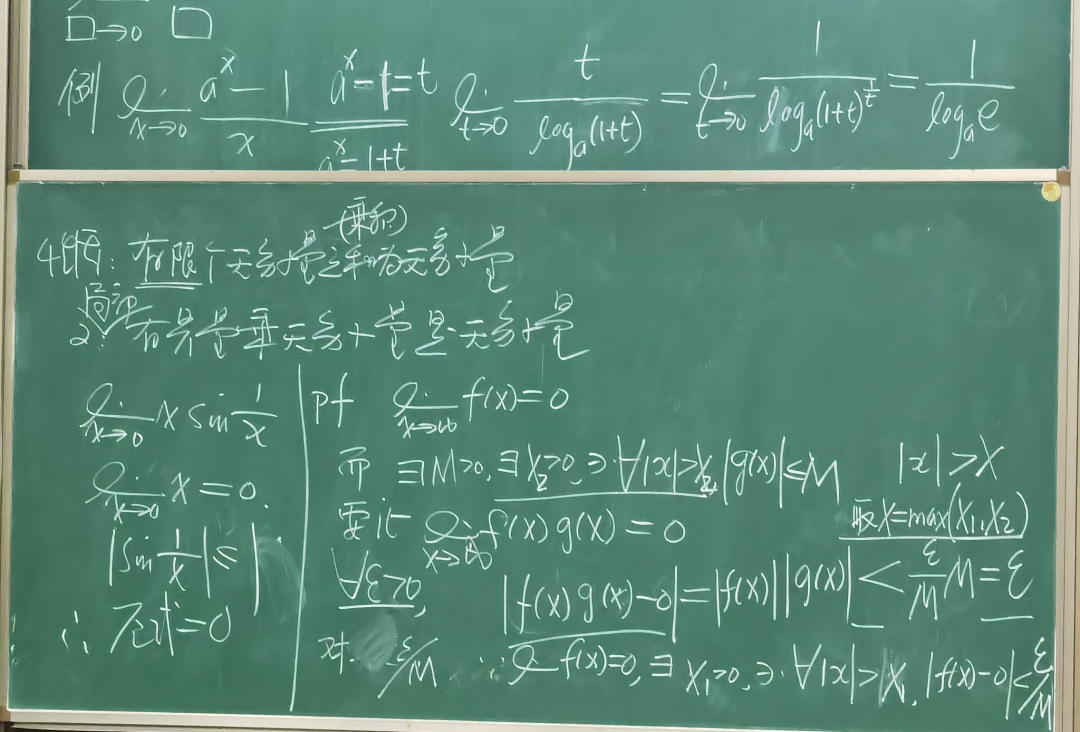 □→0 □
例 lim x→0 (a^x - 1)/x a^x - 1 = t lim t→0 t/log_a(1+t) = lim t→0 1/log_a(1+t)^(1/t) = 1/log_a e
a^x = 1+t
(乘积)
有限个无穷小量之和为无穷小量
2. 有界量乘无穷小量是无穷小量
lim x→0 x sin 1/x
lim x→0 x = 0.
|sin 1/x| ≤ 1.
∴ 原式=0
pf lim x→∞ f(x) = 0
而 ∃M>0, ∃X₂>0, ∋·∀|x|>X₂, |g(x)|≤M
要证 lim x→∞ f(x)g(x) = 0
∀ε>0,
|f(x)g(x)-0| = |f(x)||g(x)| < ε/M M = ε
|x|>X
取X=max(X₁,X₂)
对 ε/M ∵ lim f(x)=0, ∃X₁>0, ∋·∀|x|>X₁, |f(x)-0|<ε/M